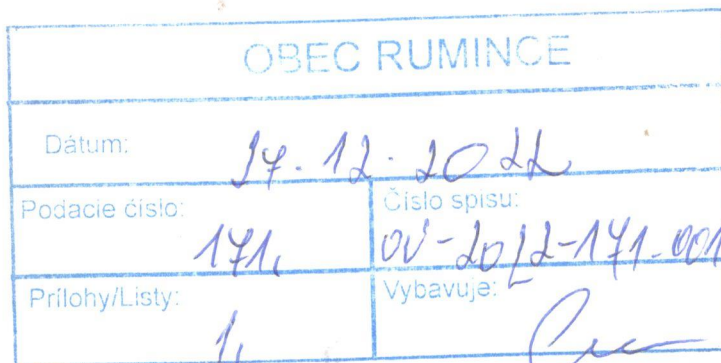 OBEC RUMINCE
Dátum: 27. 12. 2022
Podacie číslo: 171.
Číslo spisu: OÚ-2022-171-001
Prílohy/Listy: 1.
Vybavuje: